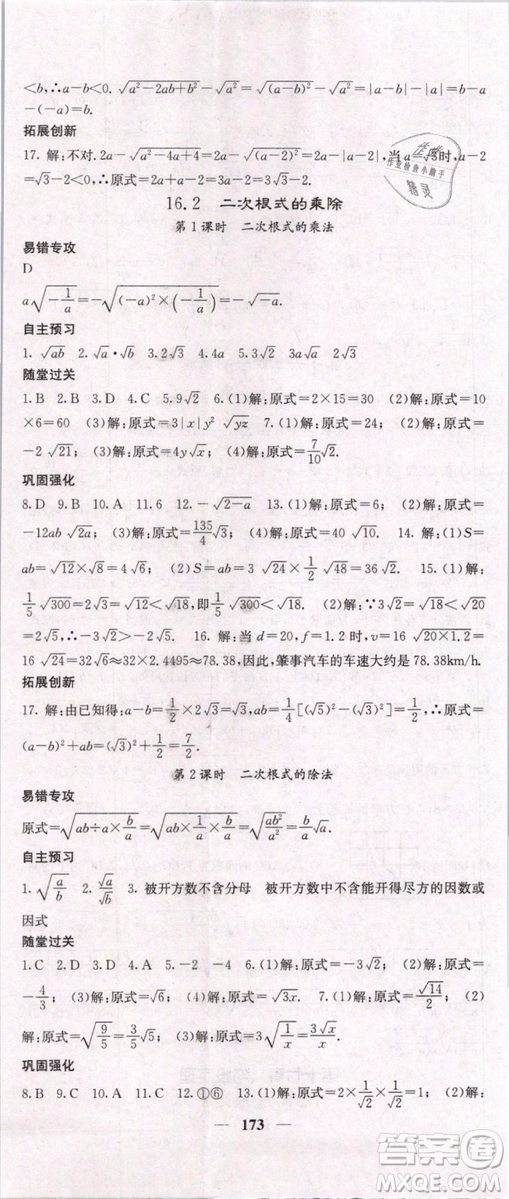 <b,∴a-b<0. √(a²-2ab+b²)-√(a²)=√((a-b)²)-√(a²)=|a-b|-|a|=b-a
-(-a)=b.
拓展创新
17. 解:不对. 2a-√(a²-4a+4)=2a-√((a-2)²)=2a-|a-2|,当a=√3时,a-2
=√3-2<0,∴原式=2a+a-2=3a-2=3√3-2.
16.2 二次根式的乘除
第1课时 二次根式的乘法
易错专攻
D
a√(-1/a)=-√((-a)²×(-1/a))=-√(-a).
自主预习
1. √(ab) 2. √a·√b 3. 2√3 4. 4a 5. 3√2 3a√a 2√3
随堂过关
1. B 2. B 3. D 4. C 5. 9√2 6. (1)解:原式=2×15=30 (2)解:原式=10
×6=60 (3)解:原式=3|x|y²√(yz) 7. (1)解:原式=24; (2)解:原式=
-2√21; (3)解:原式=-4√3; (4)解:原式=7/10√2.
巩固强化
8. D 9. B 10. A 11. 6 12. -√(2-a) 13. (1)解:原式=6; (2)解:原式=
-12ab√(2a); (3)解:原式=135/4√3; (4)解:原式=-√2/3. 14. (1)S=
ab=√12×√8=4√6. (2)S=ab=2√50×3√32=240. 15. (1)解:
1/5√300=2√3=√12<√18,即1/5√300<√18; (2)解:∵3√2=√18<√20
=2√5,∴-3√2>-2√5. 16. 解:当d=20,f=1.2时,v=16√(20×1.2)=
16√24=32√6≈32×2.4495≈78.38,因此,肇事汽车的车速大约是78.38km/h.
拓展创新
17. 解:由已知得:a-b=1/2×2√3=√3,ab=1/4[(√5)²-(√3)²]=1/2,∴原式=
(a-b)²+ab=(√3)²+1/2=7/2.
第2课时 二次根式的除法
易错专攻
原式=√(ab÷a×b/a)=√(ab×1/a×b/a)=√(ab²/a²)=b/a√a.
自主预习
1. √(a/b) 2. √a/√b 3. 被开方数不含分母 被开方数中不含能开得尽方的因数或
因式
随堂过关
1. C 2. D 3. D 4. A 5. -2 -4 6. (1)解:原式=-3√2; (2)解:原式=
-4/3; (3)解:原式=√6; (4)解:原式=√(3x). 7. (1)解:原式=√14/2; (2)
解:原式=√(9/5)=3/5√5; (3)解:原式=3√(1/3)=√3.
巩固强化
8. B 9. B 10. A 11. C 12. ①⑥ 13. (1)解:原式=2×√2/2×√2/2=1; (2)
173
作业检查小助手
精灵
答案圈
MXQE.COM